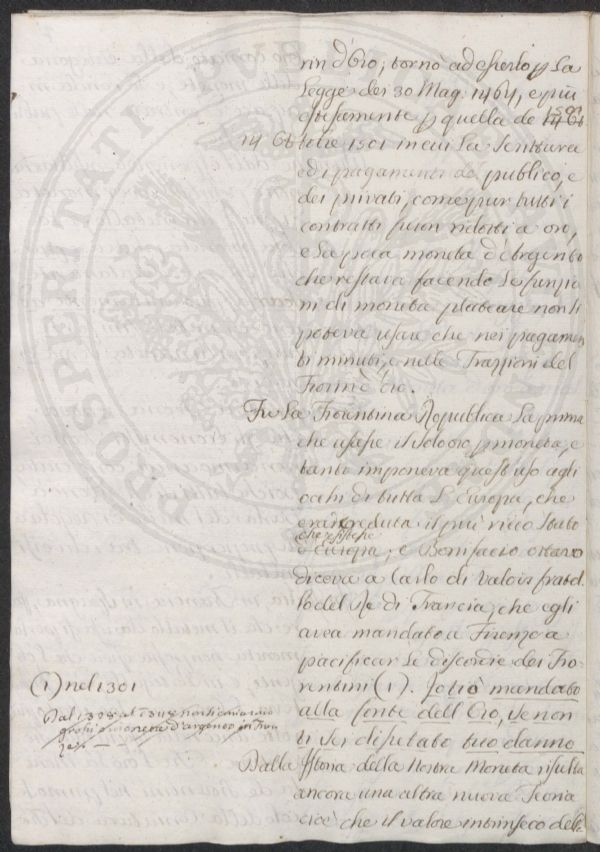 rin d'Oro; tornò ad esserlo p La
Legge dei 30 Mag: 1464, e più
estesamente p quella de
14 Ottobre 1501 in cui La Scrittura
ed i pagamenti del publico, e
dei privati, come pur tutti i
contratti furon ridotti a oro,
e La poca moneta d'Argento
che restava facendo Le funzio
ni di moneta plateale non si
poteva usare che nei pagamen
ti minuti, e nelle Frazzioni del
Fiorin d'Oro.
Fu La Fiorentina Republica La prima
che usasse il solo oro p moneta, e
tanto imponeva questo uso agli
occhi di tutta L'Europa, che
era creduta il più ricco stato
che esistesse
d'Europa; e Bonifacio ottavo
diceva a Carlo di Valois fratel
lo del Re di Francia, che egli
avea mandato a Firenze a
pacificar Le discordie dei Fio
rentini (1). Io ti ò mandato
alla fonte dell'Oro, se non
ti sei disetato tuo danno
Dalla Istoria della Nostra Moneta risulta
ancora una altra nuova Teoria
cioè che il valore intrinseco del
(1) nel 1301
Dal al non si coniarono
grossi o monete d'argento in Firen
ze
PROSPERITATI PVBLICAE